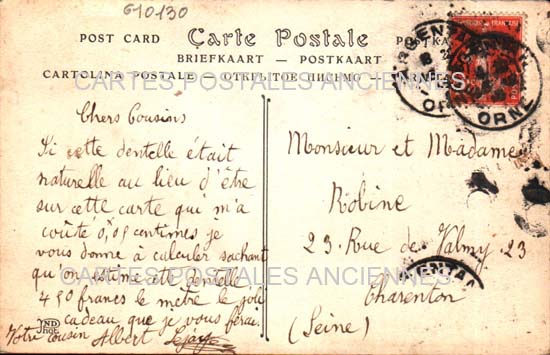 610130
POST CARD Carte Postale POSTKAART
BRIEFKAART — POSTKAART
CARTOLINA POSTALE — ОТКРЫТОЕ ПИСЬМО —
ARGENTAN
ORNE
Chers Cousins
Si cette dentelle était
naturelle au lieu d'être
sur cette carte qui m'a
coûté 0,05 centimes je
vous donne à calculer sachant
qu'on estime cette dentelle
450 francs le mètre le joli
cadeau que je vous ferai.
Votre cousin Albert
Monsieur et Madame
Robine
23. Rue de Valmy. 23
Charenton
(Seine)
CARTES POSTALES ANCIENNES
CARTES POSTALES ANCIENNES
ND
Phot